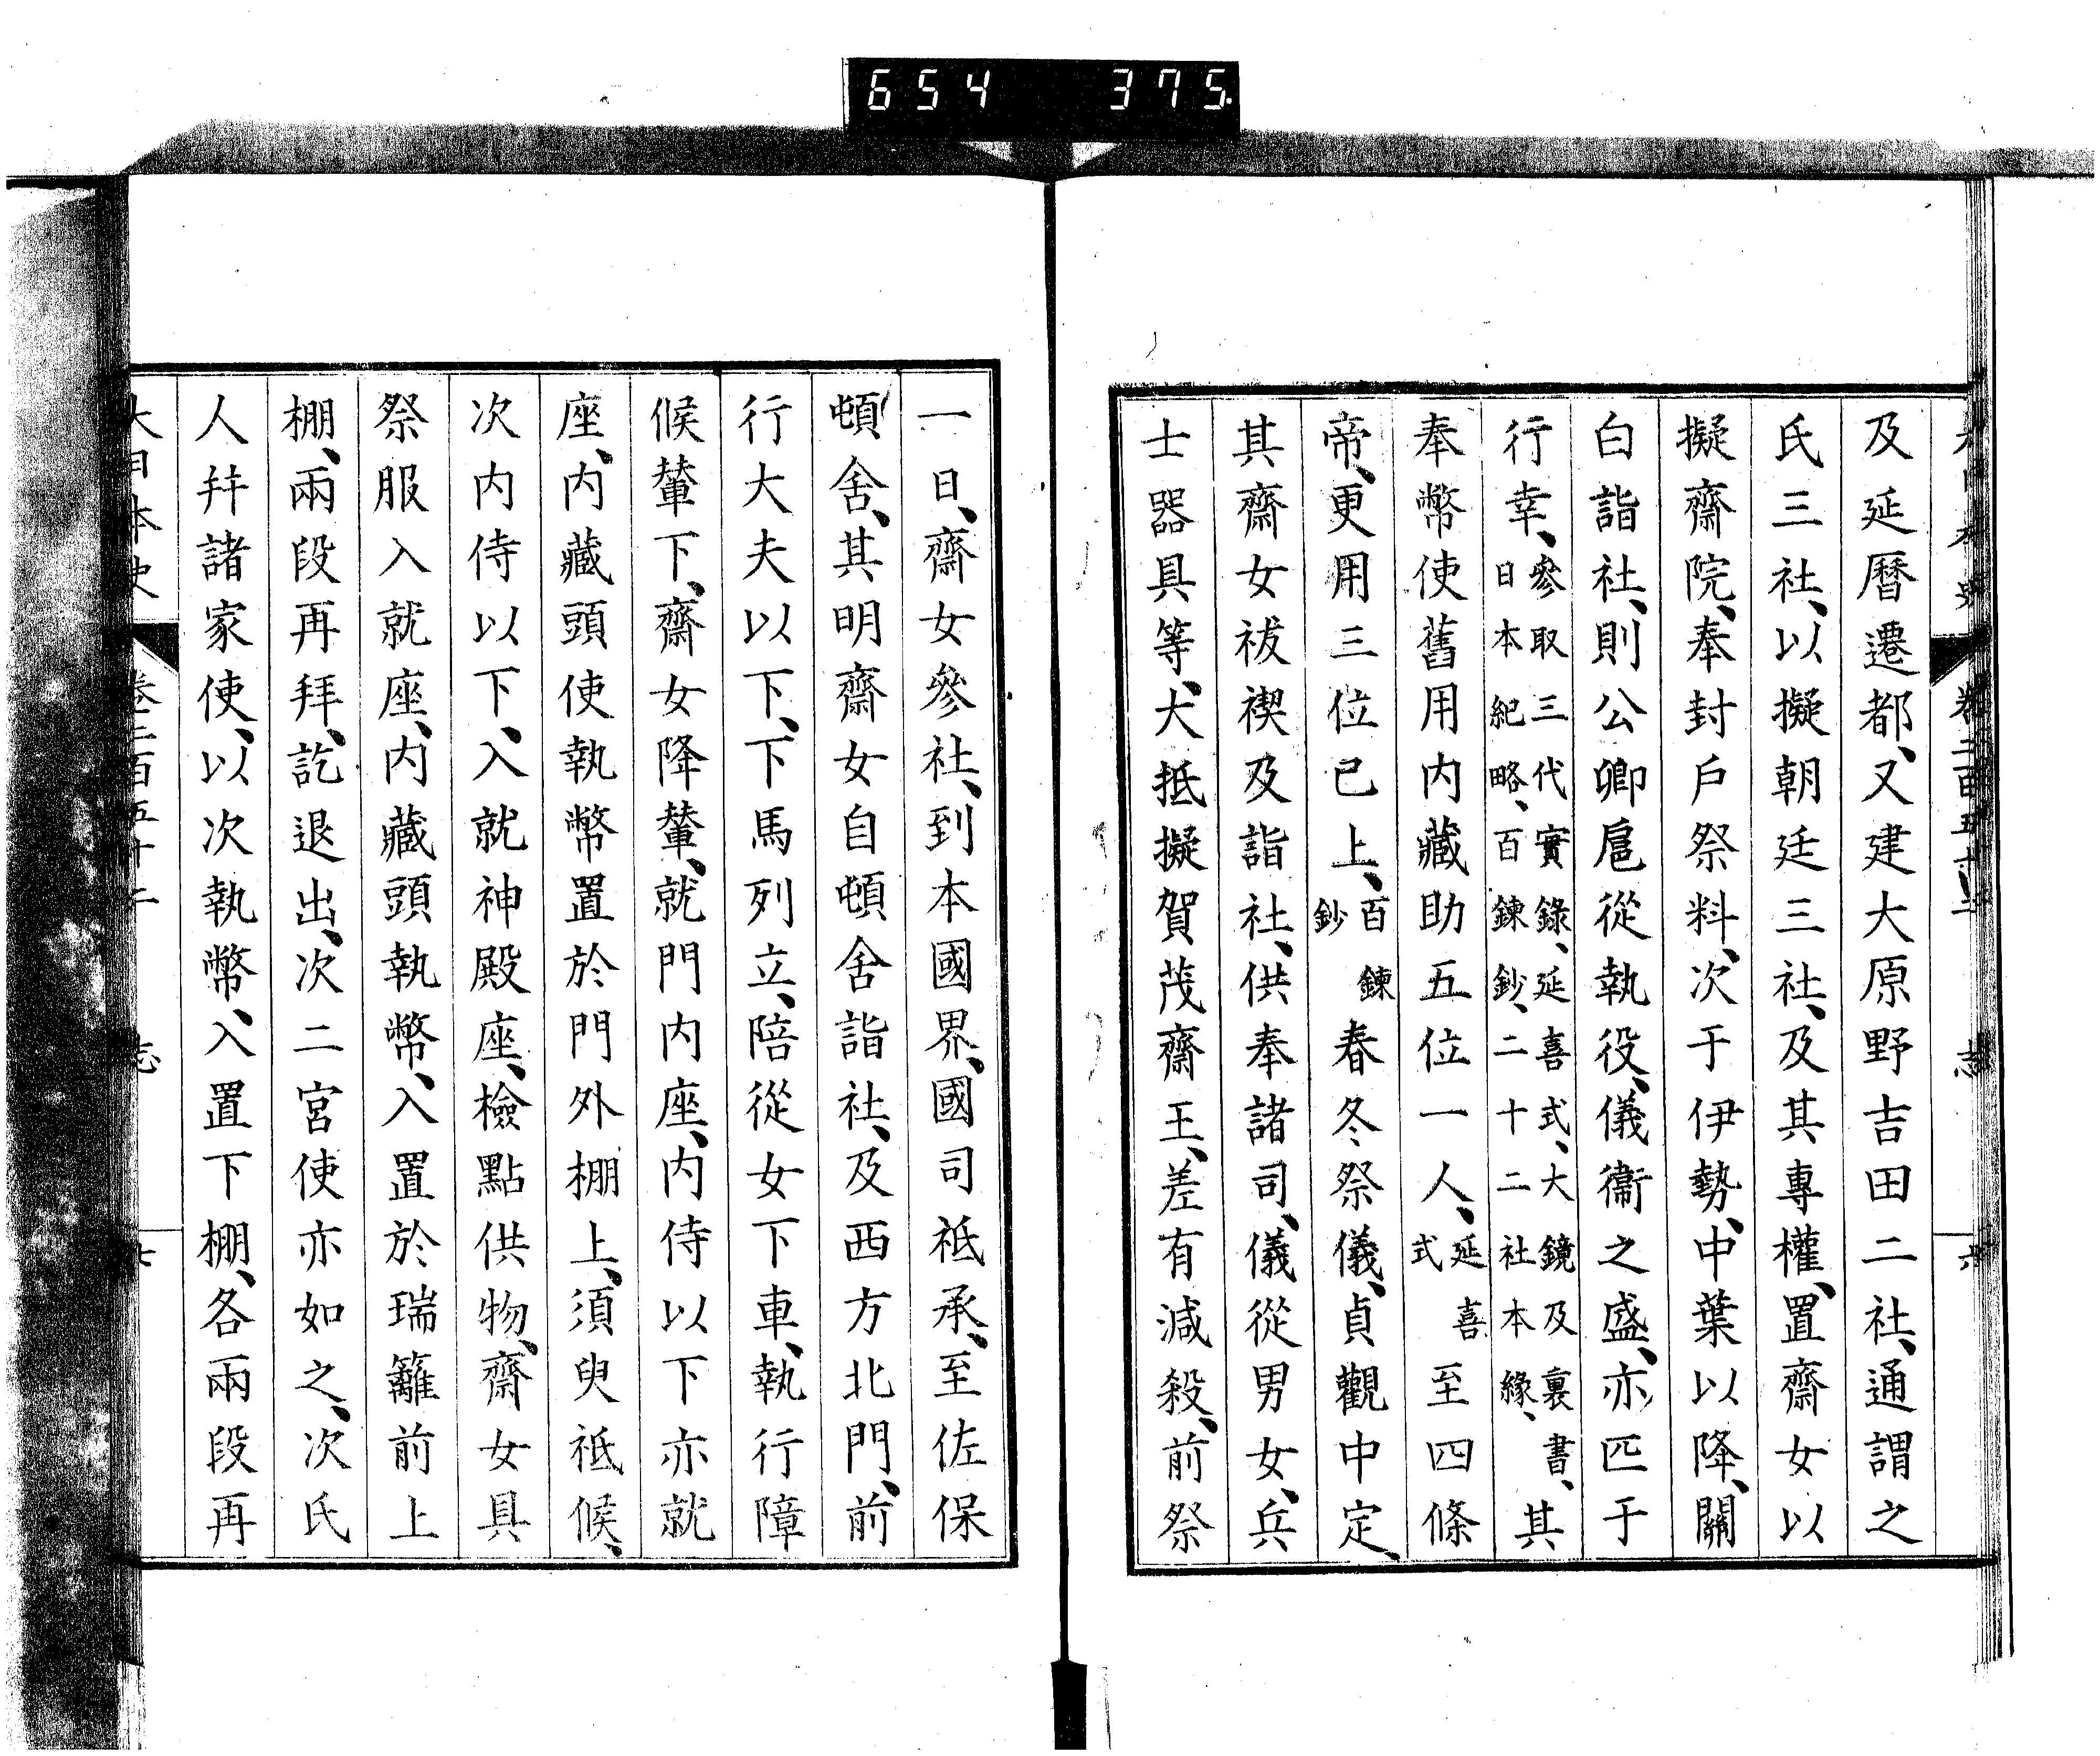 654 375
大日本史 卷二百五十二 志 六
及延曆遷都、又建大原野吉田二社、通謂之
氏三社、以擬朝廷三社、及其專權、置齋女以
擬齋院、奉封戶祭料、次于伊勢、中葉以降、關
白詣社、則公卿扈從執役、儀衞之盛、亦匹于
行幸、參取三代實錄、延喜式、大鏡及裏書、日本紀略、百鍊鈔、二十二社本緣、其
奉幣使舊用內藏助五位一人、延喜式至四條
帝、更用三位已上、百鍊鈔春冬祭儀、貞觀中定、
其齋女祓禊及詣社、供奉諸司、儀從男女、兵
士器具等、大抵擬賀茂齋王、差有減殺、前祭
一日、齋女參社、到本國界、國司祗承、至佐保
頓舍、其明齋女自頓舍詣社、及西方北門、前
行大夫以下、下馬列立、陪從女下車、執行障
候輦下、齋女降輦、就門內座、內侍以下亦就
座、內藏頭使執幣置於門外棚上、須臾祗候、
次內侍以下、入就神殿座、檢點供物、齋女具
祭服入就座、內藏頭執幣、入置於瑞籬前上
棚、兩段再拜、訖退出、次二宮使亦如之、次氏
人幷諸家使、以次執幣、入置下棚、各兩段再
大日本史 卷二百五十二 志 七